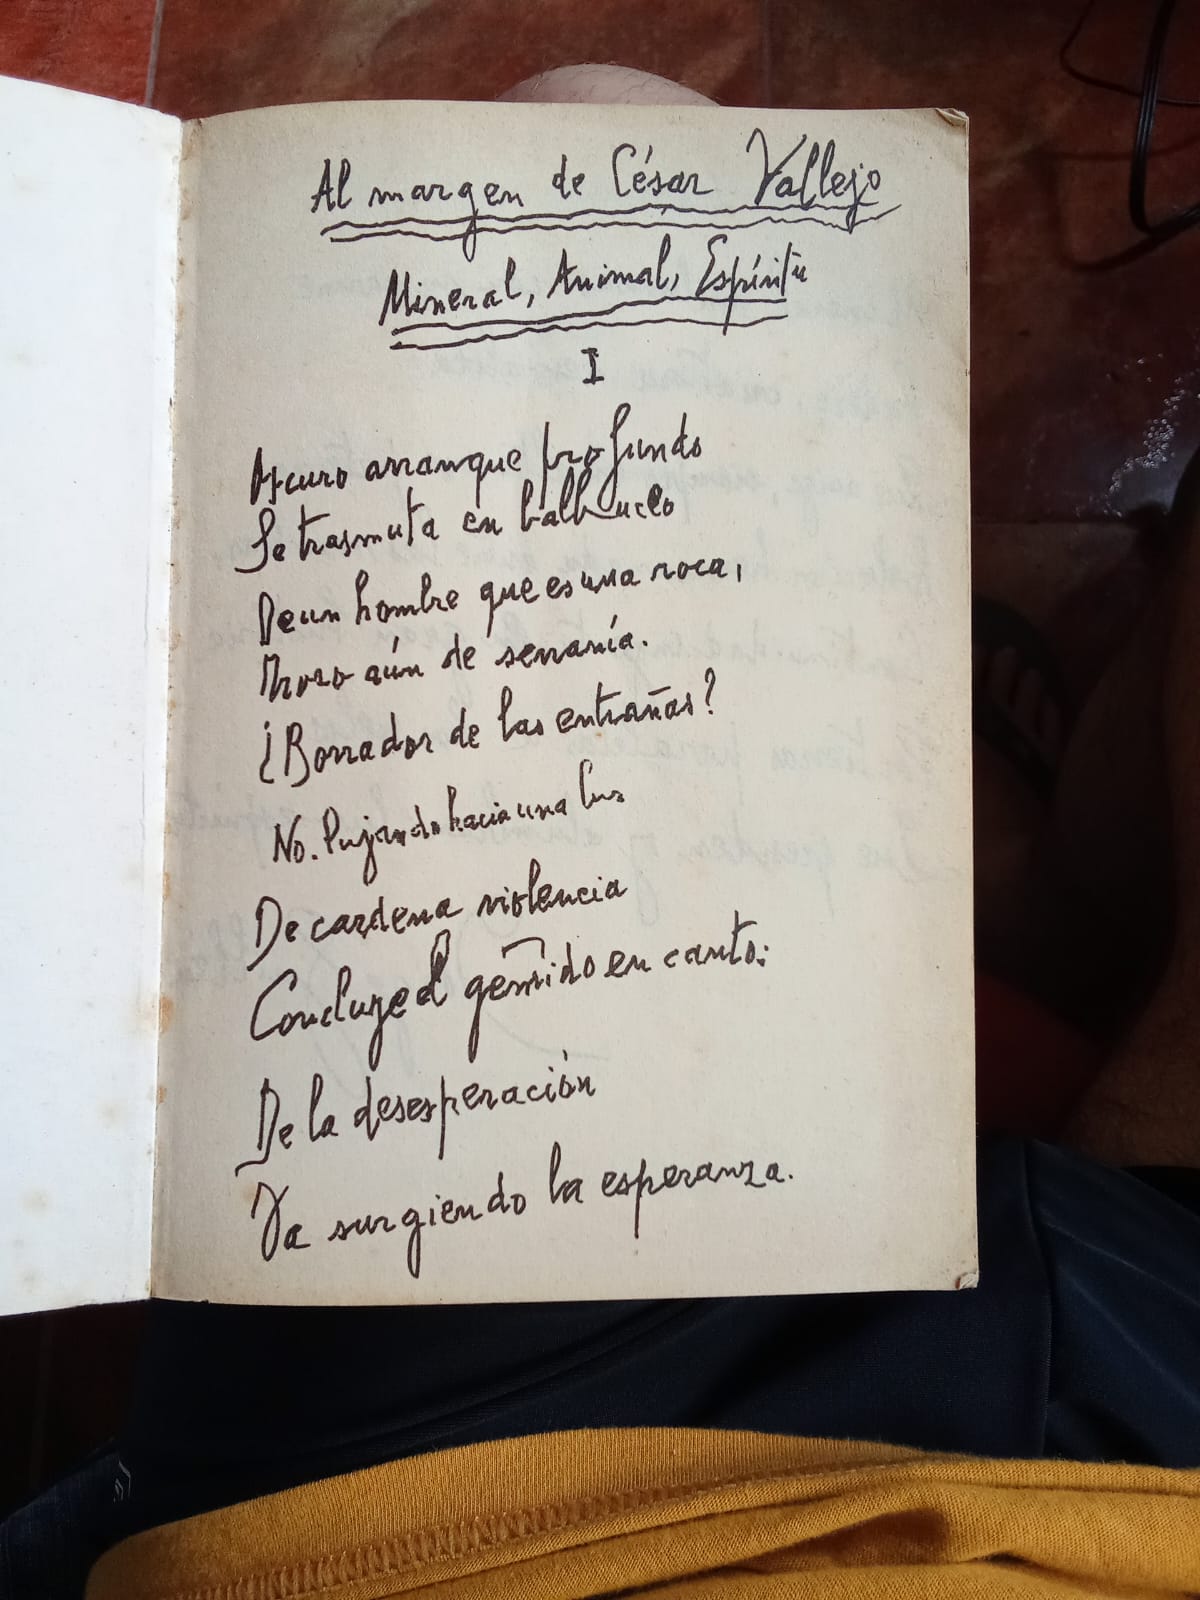 Al margen de César Vallejo
Mineral, Animal, Espíritu
I
Oscuro arranque profundo
Se trasmuta en balbuceo
De un hombre que es una roca,
Trozo aún de serranía.
¿Borrador de las entrañas?
No. Pujando hacia una luz
De cárdena violencia
Conduze el gemido en canto:
De la desesperación
Va surgiendo la esperanza.